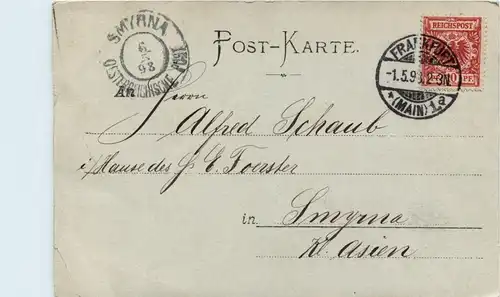 SMYRNA
6
5
98
OESTERREICHISCHE POST
POST-KARTE.
REICHSPOST
10 PF 10
FRANKFURT
-1.5.98.
(MAIN) 1a
An Herrn
Alfred Schaub
i/Hause des H. E. Foerster
in Smyrna
Kl. Asien